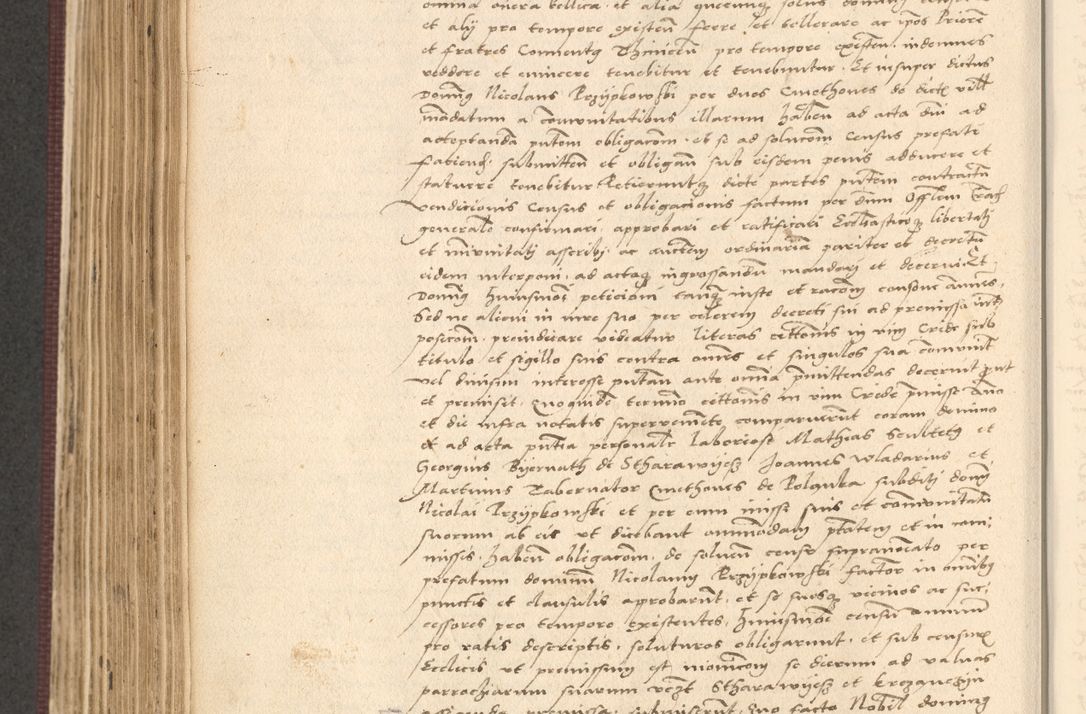 omnia onera bellica et alia quecunq solus dominus
et alij pro tempore existen ferre et bellerare ac ipos Priorem
et fratres Conventq pro tempore existen indemnes
reddere et evincere tenebitur et tenebuntur. Et insuper dictus
Domnq Nicolaus Przypkowski per duos Cmethones de dictis vill
mandatum a comunitatibus illarum haben ad acta dni ad
acceptanda pntem obligacom et se ad solucom census prefati
faciend submitten et obligan sub eisdem penis adducere et
statuere tenebitur Petieruntq dicte partes pntem contractu
vendicionis census et obligacionis factum per dnm Offlem Crac
generale confirmari approbari et ratificari Ecclesiasticeq libertati
et inmunitati asscribi ac auctem ordinariam pariter et decretu
eidem interponi ad actaq ingrossandu mandari et decerni Et
Domnq huiusmoi peticioni tanq iuste et racom consone annues
Sed ne alicui in iure suo per celerem decreti sui ad premissa int
posicom preiudicare videatur literas cittonis in vim Cride sub
titulo et sigillo suis contra omnes et singulos sua comunit
vel divisim interesse putan ante omnia pmittendas decernit put
et premisit. Quoquidem termno cittonis in vim Cride pmisse Anno
et die infra notatis superveniente comparuerunt coram domino
et ad acta pntia personalr laboriosi Mathias Scultetq et
Georgius Byernath de Stharawyesz Joannes Wladarius et
Martinus Tabernator Cmethones de Polanka subditi domi
Nicolai Przypkowski et per eum missi suis et comunitatu
suorum ab eis ut dicebant ommodam ptatem et in com
missis haben obligacom de solven censu supranotato per
prefatum dominum Nicolaum Przypkowski factor in omibq
punctis et clausulis aprobarut et se suosq vicinos ac suc
cessores pro tempore existentes huiusmoi censu annuum
pro ratis descriptis soluturos obligarunt et sub censuris
Ecclicis ut premissum est monicom se dierum ad valvas
parrochiarum suarum vczt Stharawyesz et
premissa submiserut Quo facto Nobil dominq